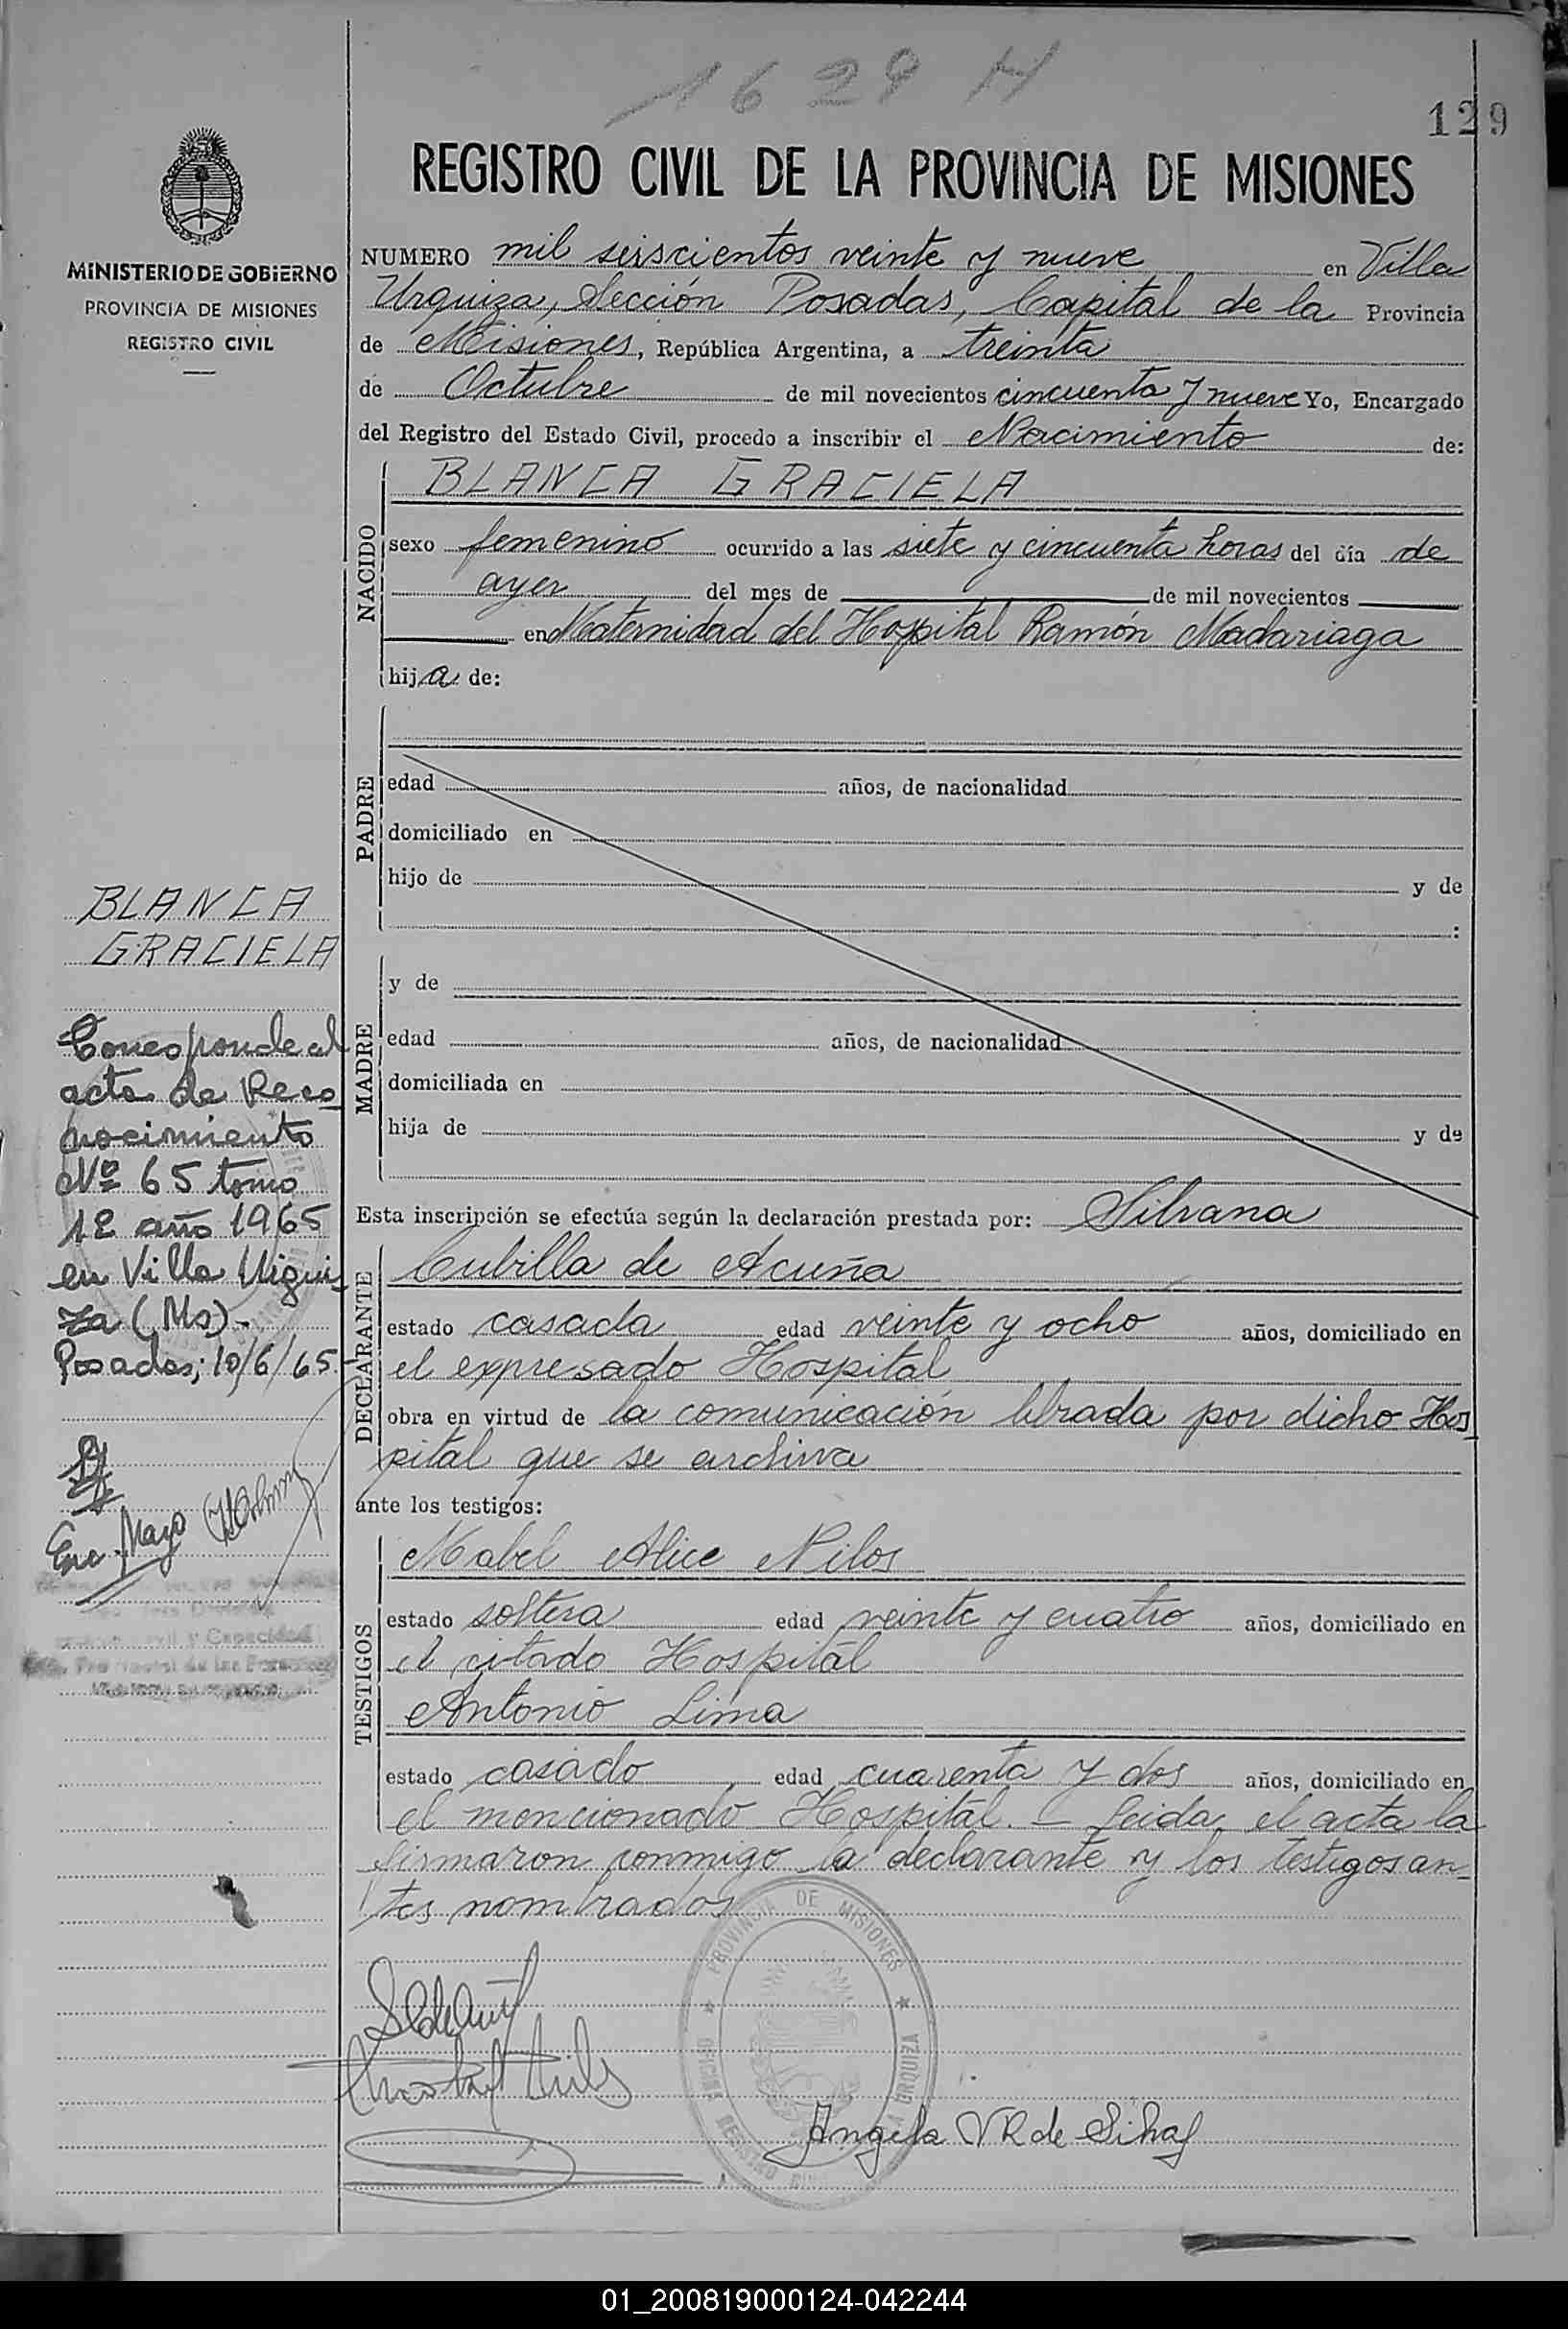 1629 H
129
REGISTRO CIVIL DE LA PROVINCIA DE MISIONES
MINISTERIO DE GOBIERNO
PROVINCIA DE MISIONES
REGISTRO CIVIL
NUMERO mil seiscientos veinte y nueve en Villa
Urquiza, Sección Posadas, Capital de la Provincia
de Misiones, República Argentina, a treinta
de Octubre de mil novecientos cincuenta y nueve Yo, Encargado
del Registro del Estado Civil, procedo a inscribir el Nacimiento de:
NACIDO
BLANCA GRACIELA
sexo femenino ocurrido a las siete y cincuenta horas del día de
ayer del mes de de mil novecientos
en Maternidad del Hospital Ramón Madariaga
hija de:
PADRE
edad años, de nacionalidad
domiciliado en
hijo de y de
:
MADRE
y de
edad años, de nacionalidad
domiciliada en
hija de y de
Esta inscripción se efectúa según la declaración prestada por: Silvana
DECLARANTE
Cubilla de Acuña
estado casada edad veinte y ocho años, domiciliado en
el expresado Hospital
obra en virtud de la comunicación librada por dicho Hos
pital que se archiva
ante los testigos:
TESTIGOS
Mabel Alice Nilos
estado soltera edad veinte y cuatro años, domiciliado en
el citado Hospital
Antonio Lima
estado casado edad cuarenta y dos años, domiciliado en
el mencionado Hospital. - Leida, el acta la
firmaron conmigo la declarante y los testigos an
tes nombrados
BLANCA
GRACIELA
Corresponde al
acta de Reco
nocimiento
Nº 65 tomo
1º año 1965
en Villa Urqui
za (Ms)-
Posadas; 10/6/65.
PROVINCIA DE MISIONES
URQUIZA
Angela VR de
01_200819000124-042244